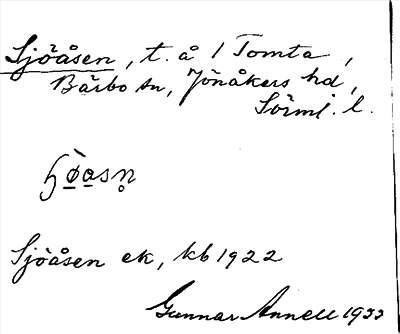 Sjöåsen, t. å 1 Tomta,
Bärbo sn, Jönåkers hd,
Sörml. l.
Sjöåsen ek, kb 1922
Gunnar Annell 1933